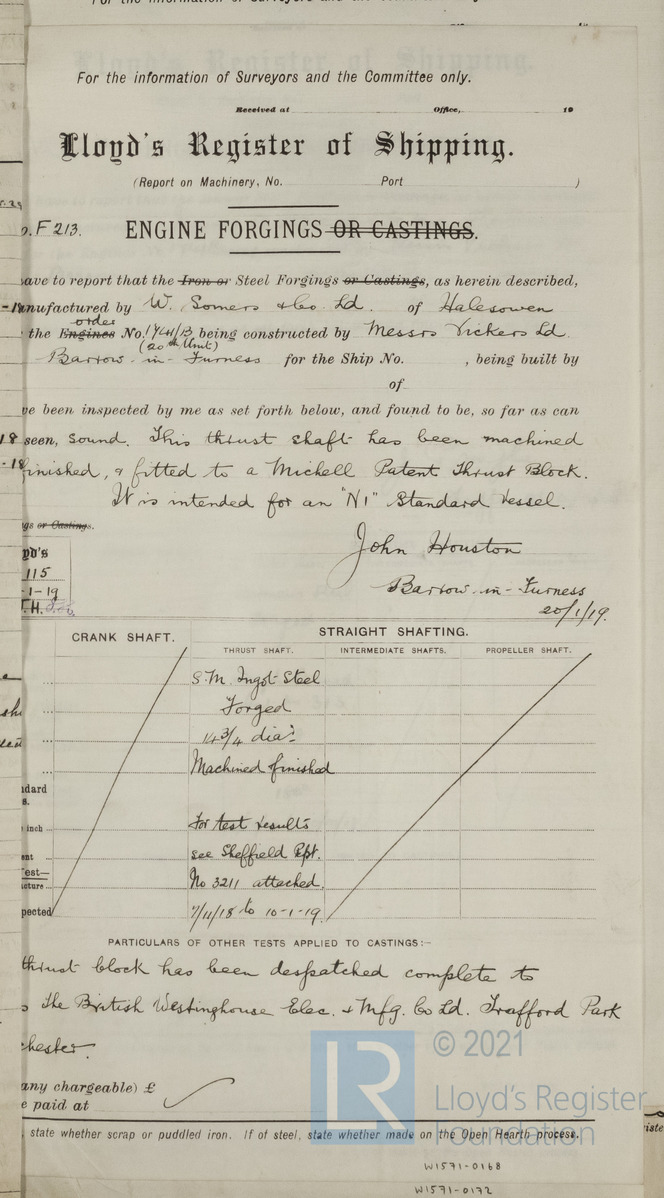 For the information of Surveyors and the Committee only.
Received at Office, 19
Lloyd's Register of Shipping.
(Report on Machinery, No. Port )
o. F 213. ENGINE FORGINGS OR CASTINGS.
ave to report that the Iron or Steel Forgings or Castings, as herein described,
anufactured by W. Somers & Co. Ld. of Halesowen
order
the Engines No. being constructed by Messrs Vickers Ld.
(20th Unit)
Barrow-in-Furness for the Ship No. , being built by
of
ve been inspected by me as set forth below, and found to be, so far as can
seen, sound. This thrust shaft has been machined
finished, & fitted to a Michell Patent Thrust Block.
It is intended for an "N1" Standard Vessel.
gs or Castings.
John Houston
yd's
115
-1-19
Barrow-in-Furness
20/1/19.
CRANK SHAFT. STRAIGHT SHAFTING.
THRUST SHAFT. INTERMEDIATE SHAFTS. PROPELLER SHAFT.
S.M. Ingot Steel
Forged
14 3/4 dia:
Machined finished
ndard
s.
inch For test results
ent see Sheffield Rpt.
est—
cture No 3211 attached.
pected 7/11/18 to 10-1-19
PARTICULARS OF OTHER TESTS APPLIED TO CASTINGS:-
thrust block has been despatched complete to
The British Westinghouse Elec. & Mfg. Co Ld. Trafford Park
chester.
any chargeable) £
e paid at
state whether scrap or puddled iron. If of steel, state whether made on the Open Hearth process.
© 2021
LR Lloyd's Register
Foundation
W1571-0168
W1571-0172